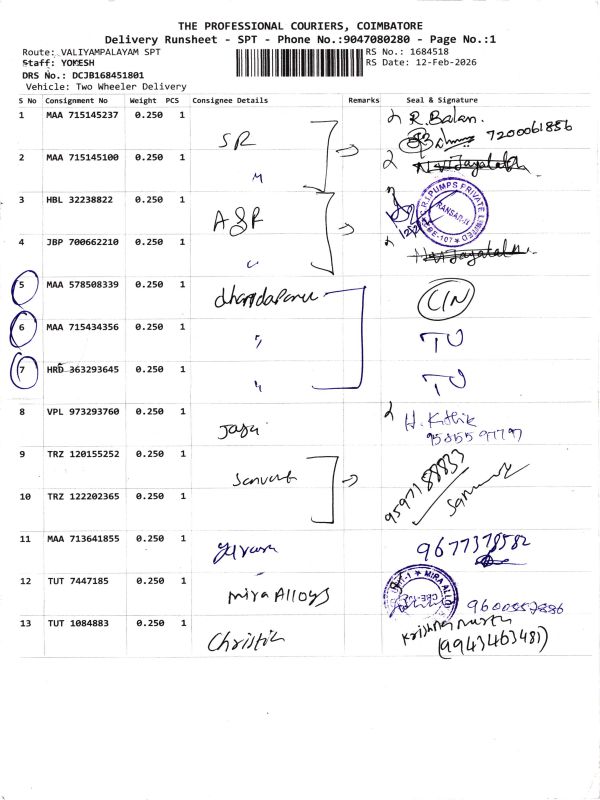 THE PROFESSIONAL COURIERS, COIMBATORE
Delivery Runsheet - SPT - Phone No.:9047080280 - Page No.:1
Route: VALIYAMPALAYAM SPT RS No.: 1684518
Staff: YOKESH RS Date: 12-Feb-2026
DRS No.: DCJB168451801
Vehicle: Two Wheeler Delivery
S No Consignment No Weight PCS Consignee Details Remarks Seal & Signature
1 MAA 715145237 0.250 1 SR R. Balan.
7200061856
2 MAA 715145100 0.250 1 "
3 HBL 32238822 0.250 1 PUMPS PRIVATE LIMITED
4 JBP 700662210 0.250 1 "
5 MAA 578508339 0.250 1 CIN
6 MAA 715434356 0.250 1 " TU
7 HRD 363293645 0.250 1 " TU
8 VPL 973293760 0.250 1 Jaya
9 TRZ 120155252 0.250 1 9597188833
10 TRZ 122202365 0.250 1
11 MAA 713641855 0.250 1 9677378582
12 TUT 7447185 0.250 1 Mira Alloys MIRA ALLOYS
13 TUT 1084883 0.250 1 Krishna
(9943463481)